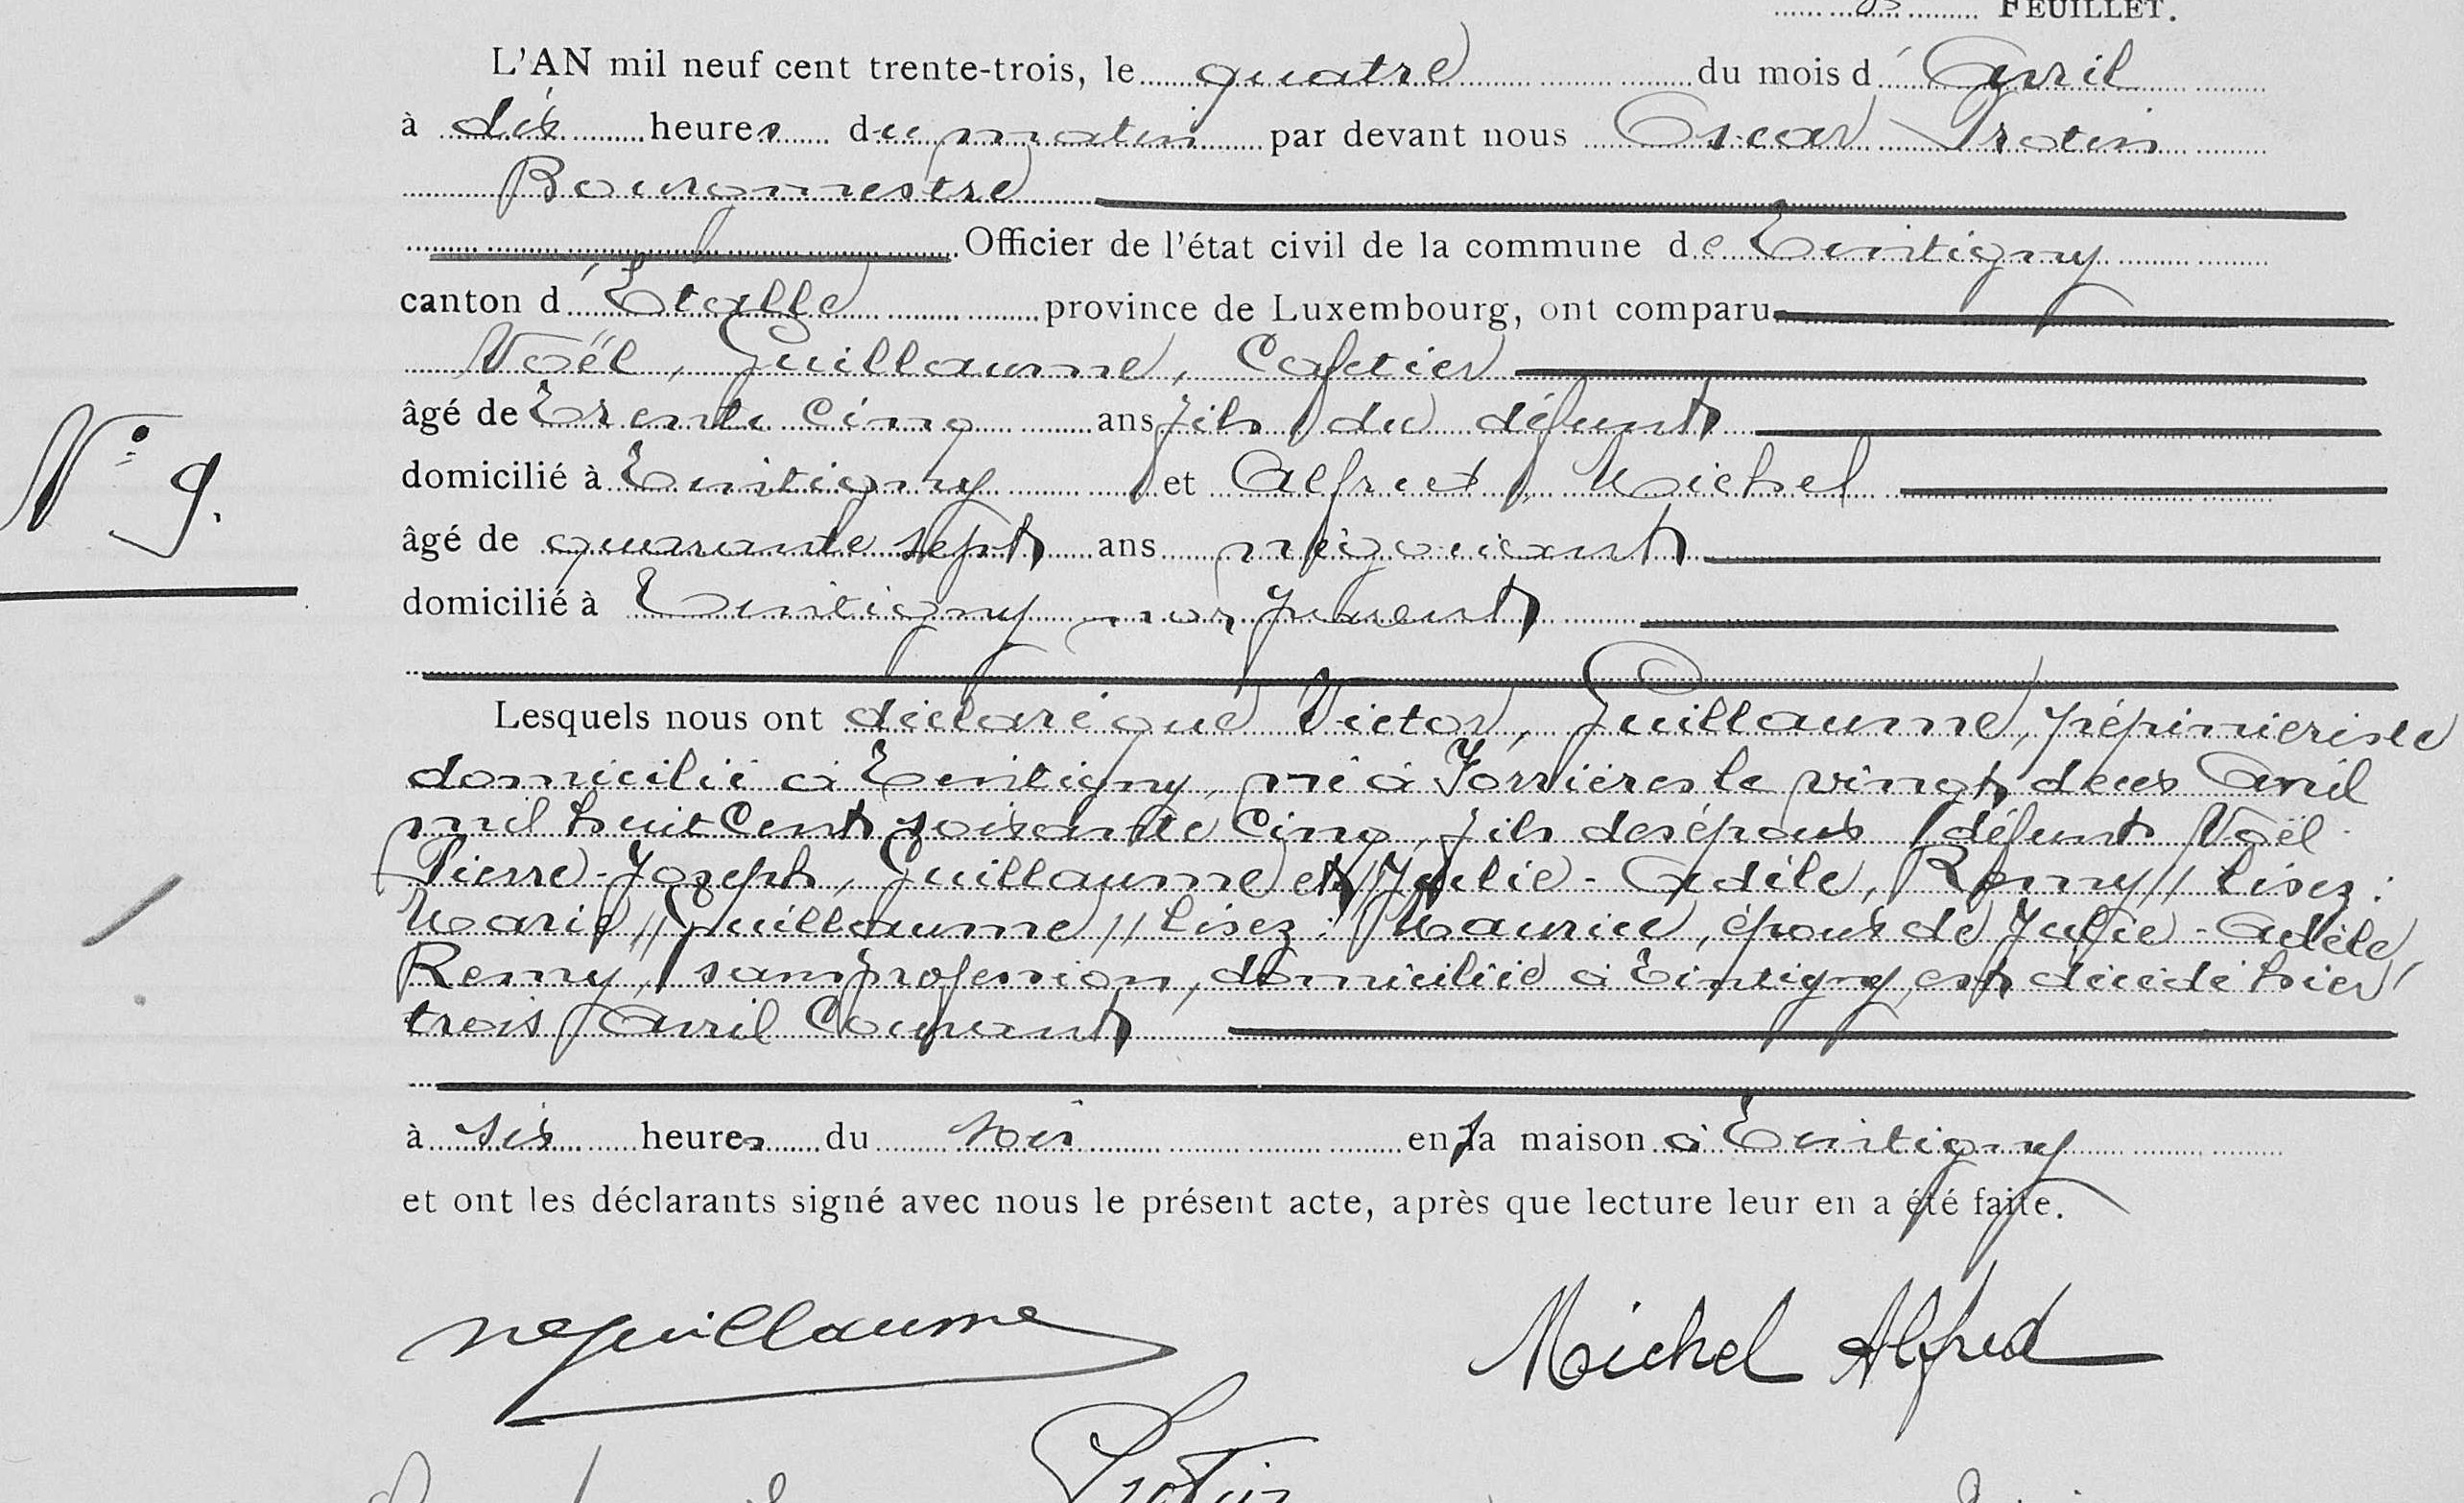 FEUILLET.
L'AN mil neuf cent trente-trois, le quatre du mois d'Avril
à dix heures du matin par devant nous Oscar Protin
Bourgmestre
Officier de l'état civil de la commune de Tintigny
canton d'Etalle province de Luxembourg, ont comparu
Noël, Guillaume, Cafetier
âgé de Trente cinq ans fils du défunt
domicilié à Tintigny et Alfred, Michel
âgé de quarante sept ans négociant
domicilié à Tintigny non parent
N° 9.
Lesquels nous ont déclaré que Victor, Guillaume, pépinieriste
domicilié à Tintigny, né à Forrières le vingt deux Avril
mil huit cent soixante cinq, fils des époux défunts Noël
Pierre-Joseph, Guillaume et Julie-Adèle, Remy // Lisez :
Marie, // Guillaume // Lisez : Maurice, époux de Julie-Adèle,
Remy, sans profession, domiciliée à Tintigny, est décédé hier
trois Avril Courant
à six heures du soir en sa maison à Tintigny
et ont les déclarants signé avec nous le présent acte, après que lecture leur en a été faite.
NGuillaume Michel Alfred
Protin